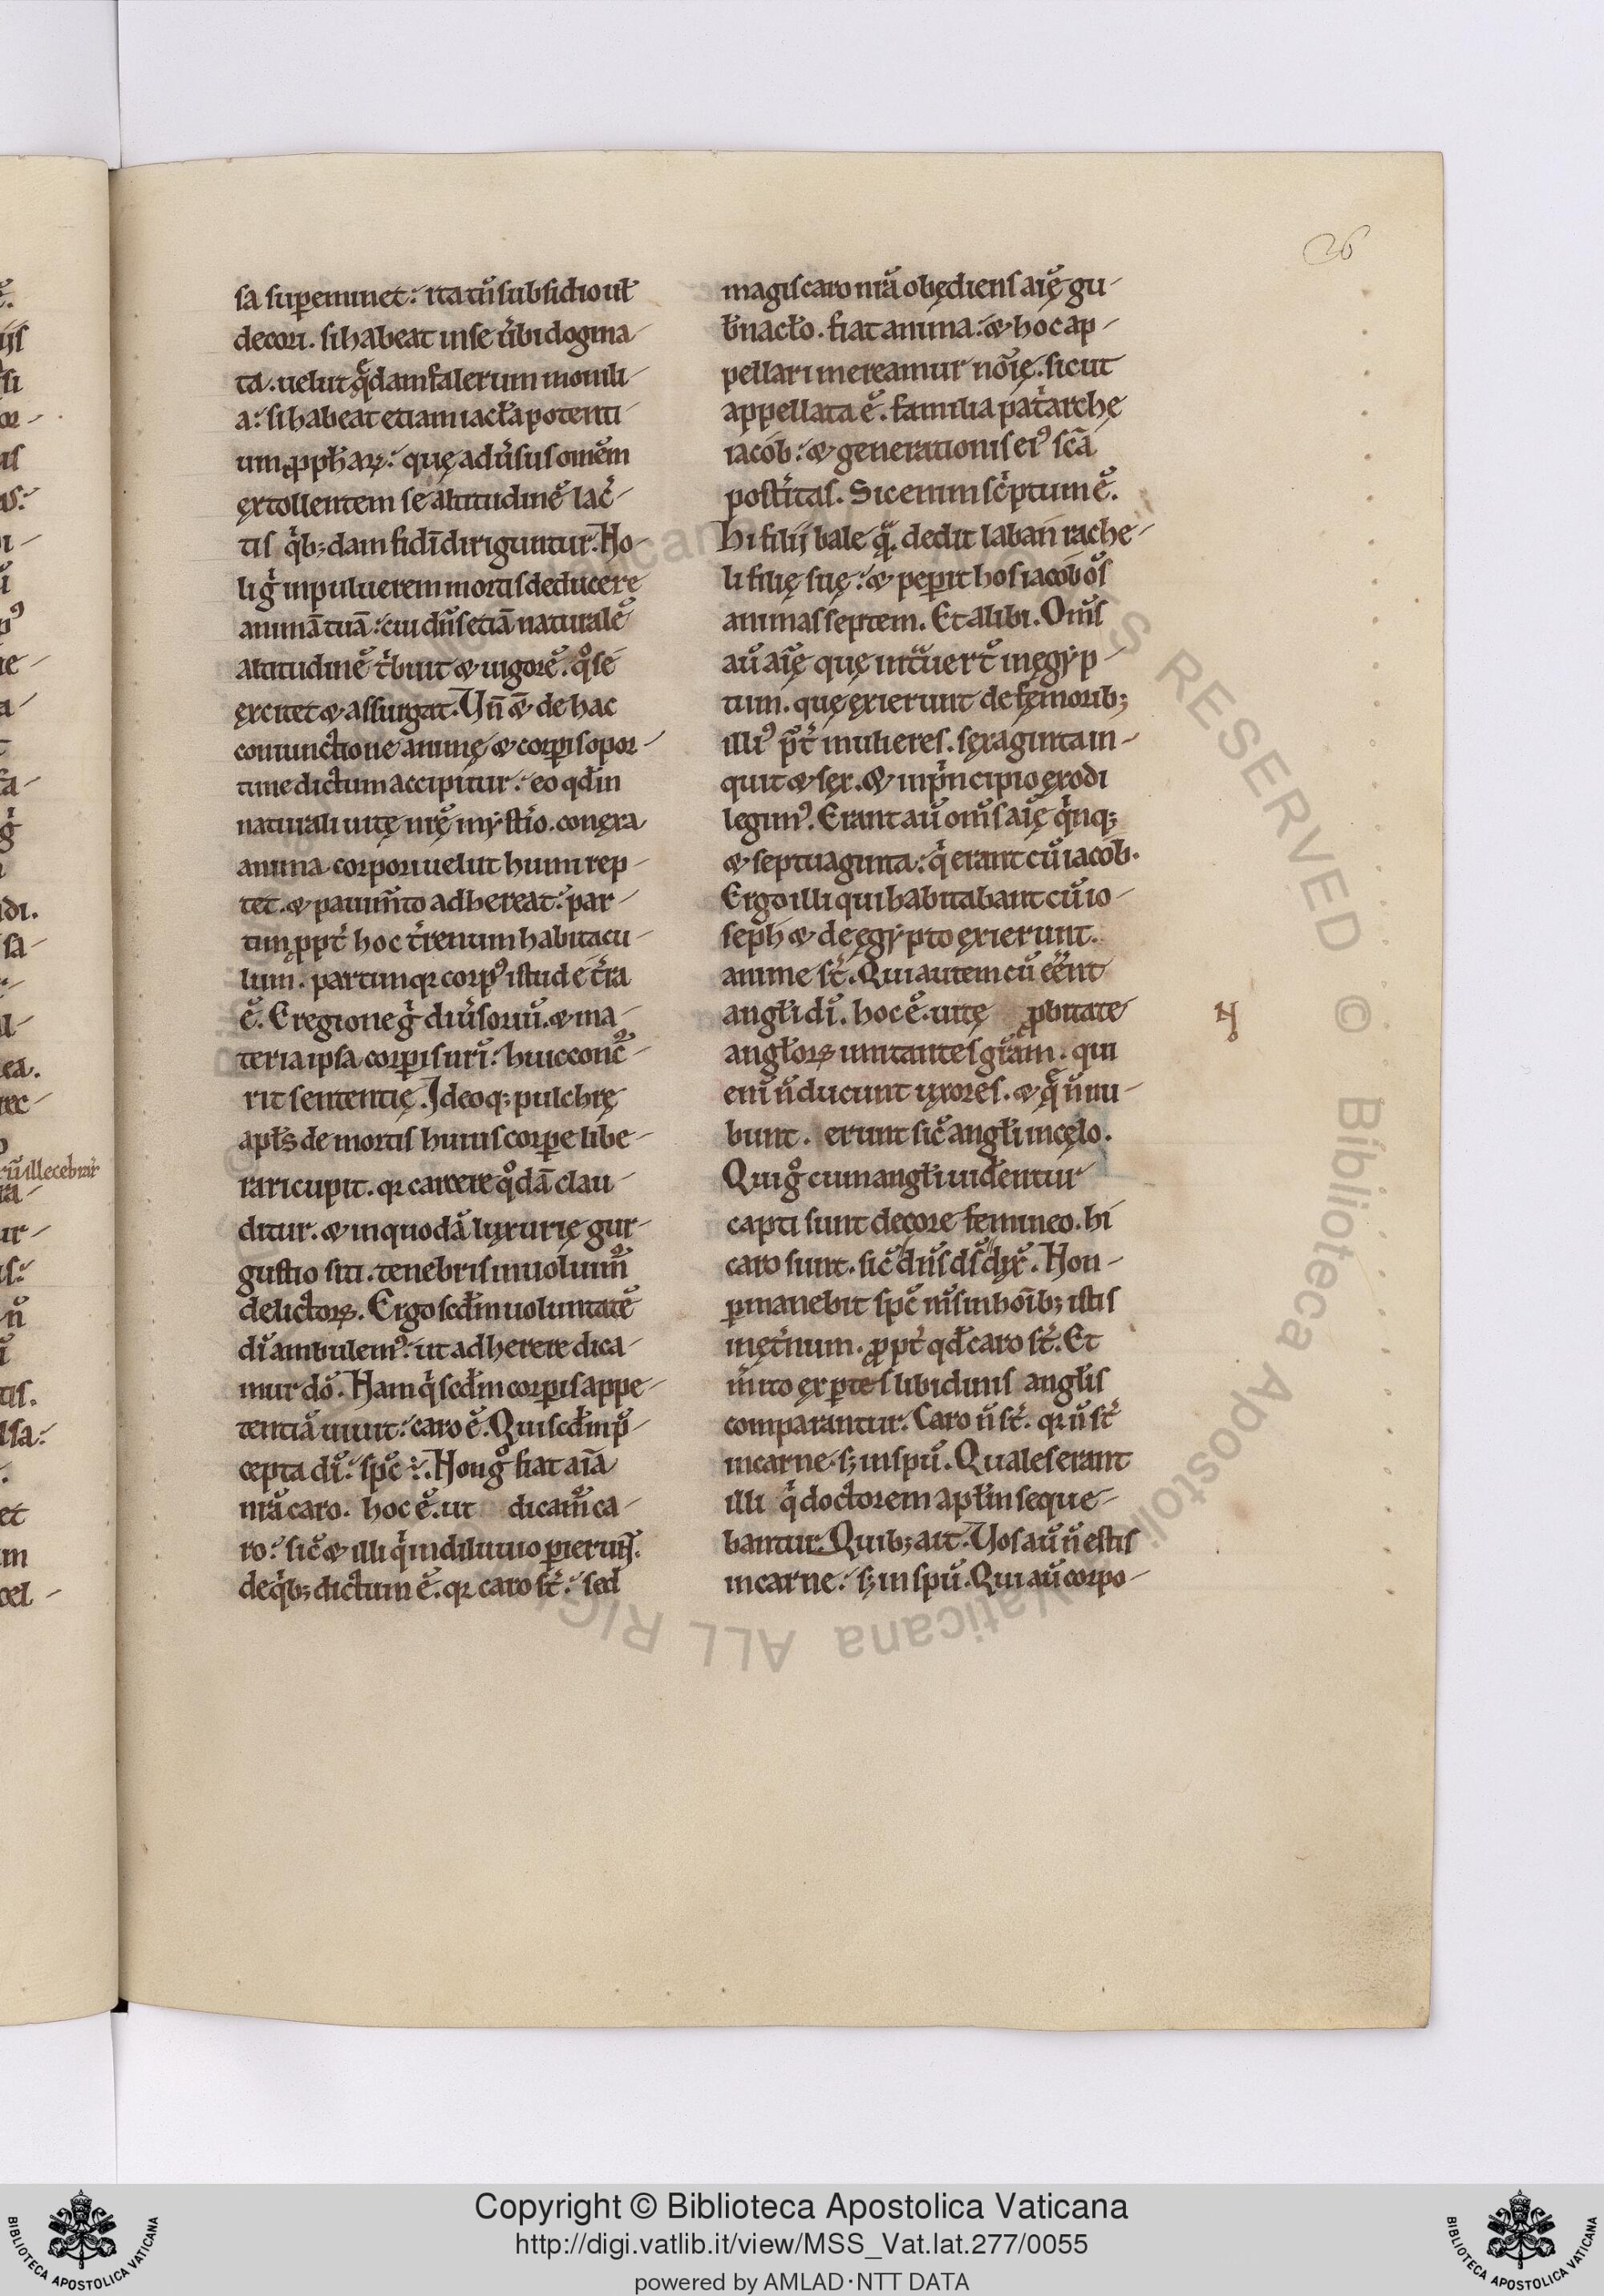 26
sa sup̱eminet: ita tū subsidio ut
decori. si habeat in se ubi dogma-
ta. uelut qͣdam falerum monili-
a: si habeat etiam iacta potenti-
um ꝓph̄aꝝ: quę aduͥsus omem̄
extollentem se altitudinē iac̄-
tis qͥb; dam fidī diriguntur. Ho-
li gͥ in puluerem mortis deducere
animā tuā: cui dn̄s etiā naturalē
altitudinē tͥbuit & uigorē. qͦ se
ęxcitet & assurgat. Vn̄ & de hac
coniunctione animę & corp̱is opor-
tune dictum accipitur: eo qd̄ in
naturali uitę nrę̄ mẏstͥio. conęxa
anima corpori uelut humi rep-
tet. & pauim̄to adhereat: par-
tim ꝓpt̄ hoc tͥrenum habitacu-
lum. partim qꝛ corpꝰ istud e tͥra
ē. E regione gͥ diuͥsoriū. & ma-
teria ipsa corp̱is urī: huic conc̄-
rit sententię. Ideoq; pulchrę
apłs de mortis huius corp̱e libe-
rari cupit. qꝛ carcere qͦdā clau-
ditur. & in quodā luxurię gur-
gustio siti. tenebris inuoluim̄
delictoꝝ. Ergo scd̄m uoluntatē
dī ambulemꝰ: ut adherere dica-
mur dō. Nam qͥ scd̄m corp̱is appe-
tentiā uiuit: caro ē. Qui scd̄m p̄-
cepta dī: spc̄ ÷. Non gͦ fiat aīa
nrā caro. hoc ē. ut dicam̄ ca-
ro: sic̄ & illi qͥ in diluuio p̱ierunt.
de qͥb; dictum ē. qꝛ caro st̄: sed
magis caro nrā obędiens aię̄ gu-
b̄nacło. fiat anima: & hoc ap-
pellari mereamur noīę. sicut
appellata ē. familia patͥarchę
iacob: & generationis eiꝰ scā
postͥitas. Sic enim scͥptum ē.
Hi filij bale qͣ. dedit laban rache-
li filię suę: & pep̱it hos iacob os̄
animas septem. Et alibi. Om̄s
aū aię̄ quę intͣuert̄ in ęgẏp-
tum. quę ęxierunt de fęmorib;
illiꝰ p̄t̄ mulieres. sęxaginta in-
quit & sęx. & in pͥncipio ęxodi
legimꝰ. Erant aū om̄s aię̄ qͥnq;
& septuaginta: qͥ erant cū iacob.
Ergo illi qui habitabant cū io-
seph & de ęgẏpto ęxierunt.
anime st̄. Qui autem cū eēnt
angłi dī. hoc ē. uitę ꝓbitate
angłoꝝ imitantes grām. qui
eni n̄ ducunt uxores. & qͣ n̄ nu-
bunt. erunt sic̄ angłi in cęlo.
Qui gͦ cum angłi uidentur
capti sunt decore femineo. hi
caro sunt. sic̄ dn̄s ds̄ dix̄. Non
p̱manebit spc̄ ms̄ in hoīb; istis
in ęt̄num. ꝓpt̄ qd̄ caro st̄. Et
m̄ito ęxp̱tes libidinis angłis
comparantur. Caro n̄ st̄. qꝛ n̄ st̄
in carne. s; in spū. Quales erant
illi qͥ doctorem apłm seque-
bantur. Quib; ait. Vos aū n̄ estis
in carne: s; in spū. Qui aū corpo-
Copyright © Biblioteca Apostolica Vaticana
http://digi.vatlib.it/view/MSS_Vat.lat.277/0055
powered by AMLAD·NTT DATA